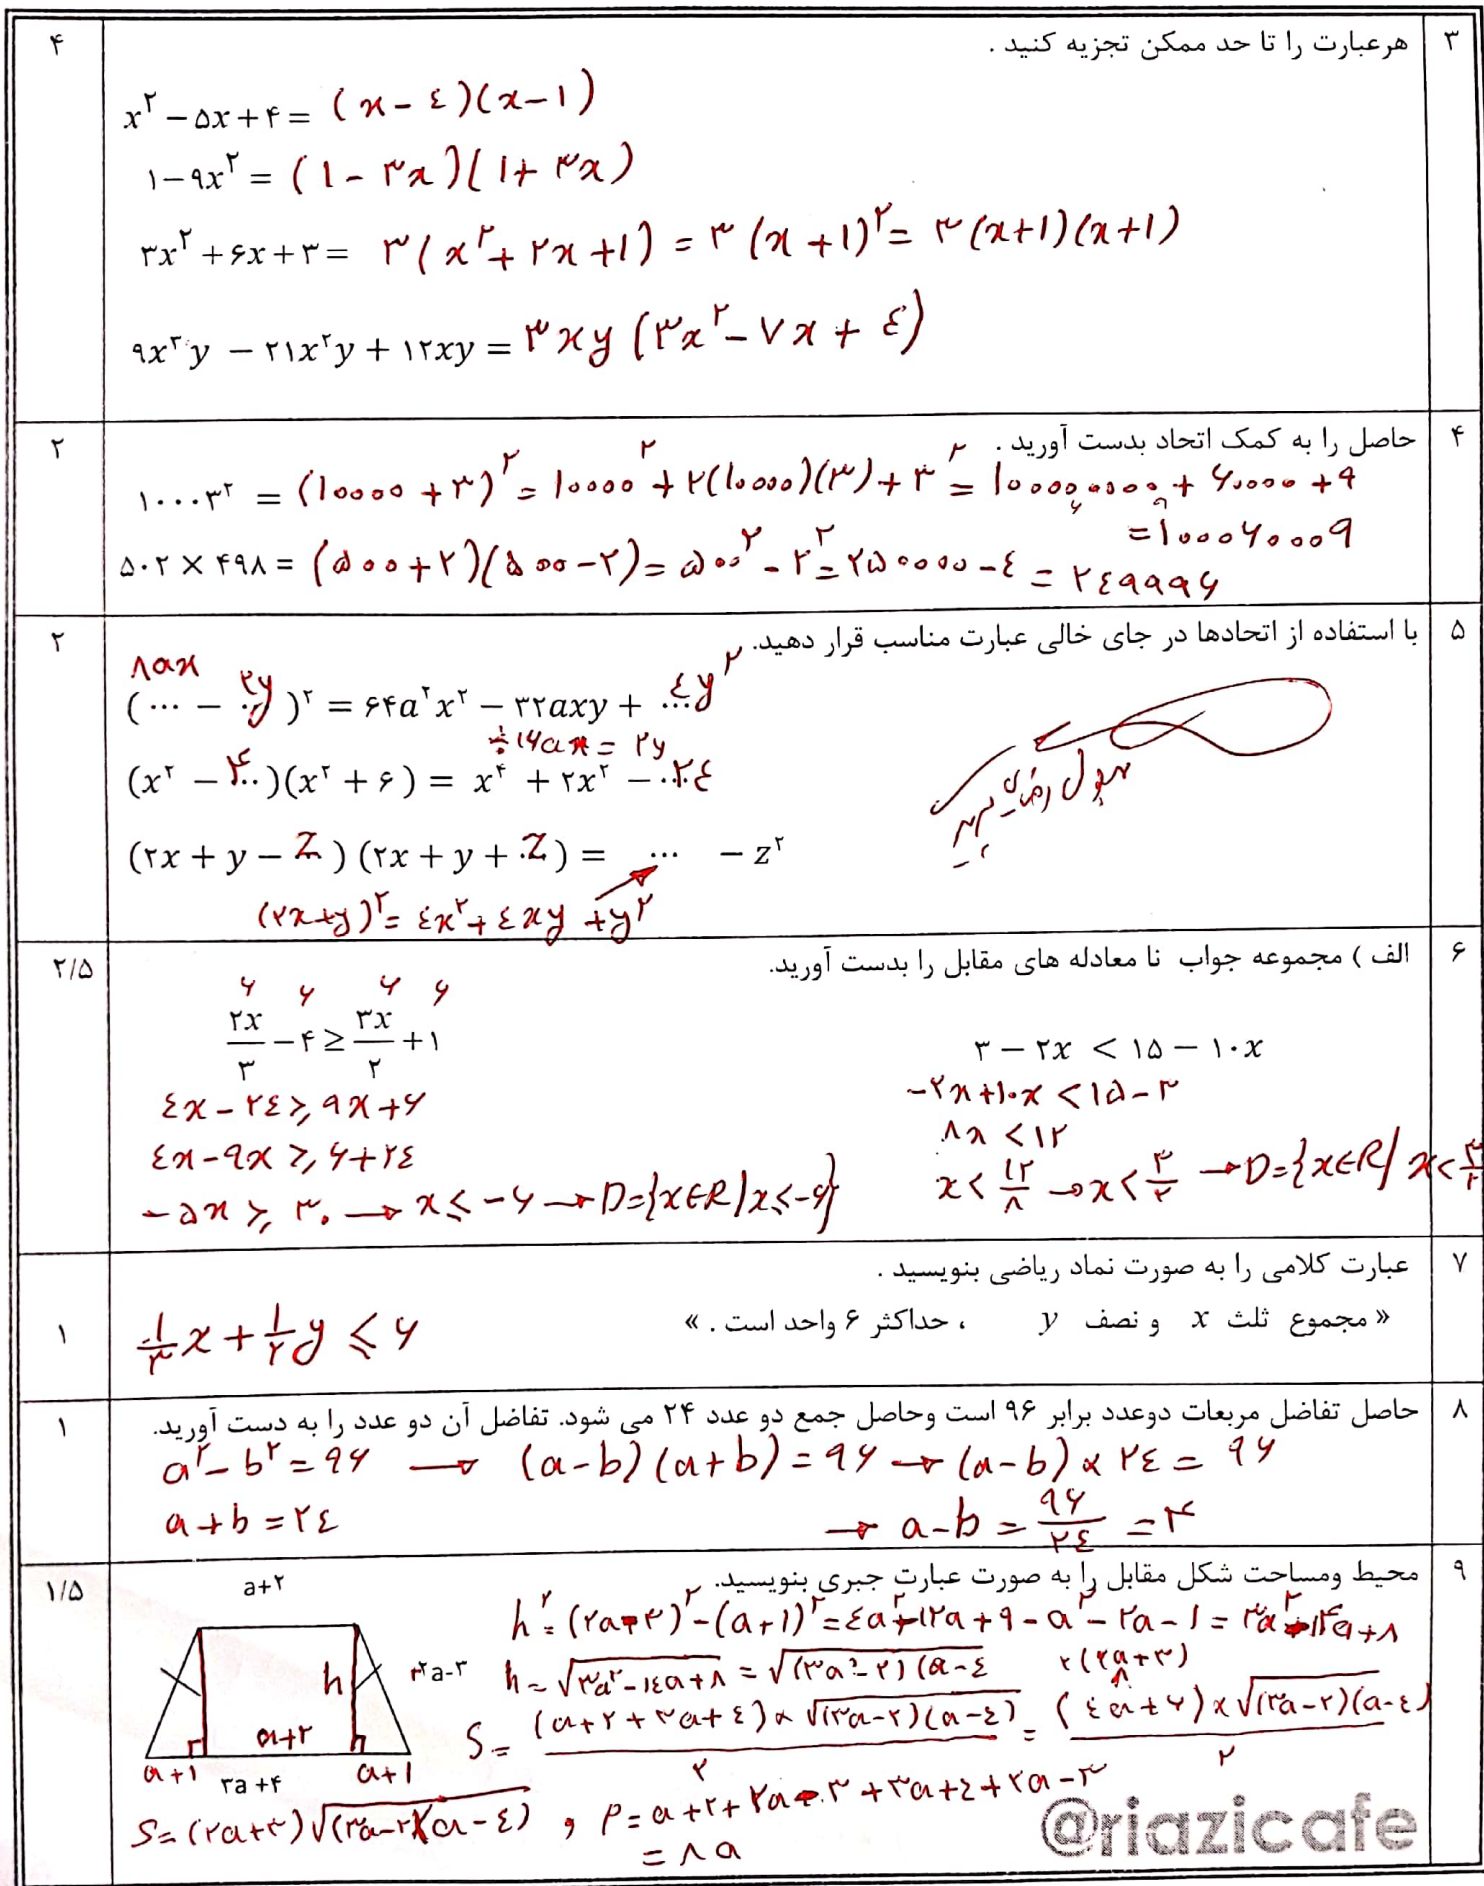 ۳ هر عبارت را تا حد ممکن تجزیه کنید . ۴
x² − ۵x + ۴ = (x − ٤)(x − ۱)
۱ − ۹x² = (۱ − ۳x)(۱ + ۳x)
۳x² + ۶x + ۳ = ۳(x² + ۲x + ۱) = ۳(x + ۱)² = ۳(x+۱)(x+۱)
۹x³y − ۲۱x²y + ۱۲xy = ۳xy(۳x² − ۷x + ٤)
۴ حاصل را به کمک اتحاد بدست آورید . ۲
۱۰۰۰۳² = (۱۰۰۰۰ + ۳)² = ۱۰۰۰۰² + ۲(۱۰۰۰۰)(۳) + ۳² = ۱۰۰۰۰۰۰۰۰ + ۶۰۰۰۰ + ۹
= ۱۰۰۰۶۰۰۰۹
۵۰۲ × ۴۹۸ = (۵۰۰+۲)(۵۰۰−۲) = ۵۰۰² − ۲² = ۲۵۰۰۰۰ − ٤ = ۲٤۹۹۹۶
۵ با استفاده از اتحادها در جای خالی عبارت مناسب قرار دهید. ۲
۸ax ۲y
(... − ...)² = ۶۴a²x² − ۳۲axy + ...٤y²
÷۱۶ax = ۲y
(x² − ...۴)(x² + ۶) = x⁴ + ۲x² − ...۲٤
(۲x + y − z)(۲x + y + z) = ... − z²
(۲x+y)² = ٤x² + ٤xy + y²
۶ الف ) مجموعه جواب نا معادله های مقابل را بدست آورید. ۲/۵
۶ ۶ ۶ ۶
۲x/۳ − ۴ ≥ ۳x/۲ + ۱
۳ − ۲x < ۱۵ − ۱۰x
٤x − ۲٤ ≥ ۹x + ۶
−۲x + ۱۰x < ۱۵ − ۳
٤x − ۹x ≥ ۶ + ۲٤
۸x < ۱۲
−۵x ≥ ۳۰ → x ≤ −۶ → D={x∈R | x ≤ −۶}
x < ۱۲/۸ → x < ۳/۲ → D={x∈R | x < ۳/۲
۷ عبارت کلامی را به صورت نماد ریاضی بنویسید .
« مجموع ثلث x و نصف y ، حداکثر ۶ واحد است . » ۱
۱/۳ x + ۱/۲ y ≤ ۶
۸ حاصل تفاضل مربعات دوعدد برابر ۹۶ است وحاصل جمع دو عدد ۲۴ می شود. تفاضل آن دو عدد را به دست آورید. ۱
a² − b² = ۹۶ → (a−b)(a+b) = ۹۶ → (a−b) × ۲٤ = ۹۶
a + b = ۲٤ → a−b = ۹۶/۲٤ = ۴
۹ محیط ومساحت شکل مقابل را به صورت عبارت جبری بنویسید. ۱/۵
a+۲
h
۲a−۳
a+۲
a+۱ a+۱
۳a+۴
h² = (۲a−۳)² − (a+۱)² = ٤a² − ۱۲a + ۹ − a² − ۲a − ۱ = ۳a² − ۱۴a + ۸
h = √(۳a² − ۱٤a + ۸) = √((۳a − ۲)(a − ٤
۲(۲a+۳)
S = (a+۲+۳a+٤) × √((۳a−۲)(a−٤)) / ۲ = (٤a+۶) × √((۳a−۲)(a−٤)) / ۲
S = (۲a+۳)√((۳a−۲)(a−٤)) , P = a+۲+۲a−۳+۳a+٤+۲a−۳
= ۸a
@riazicafe